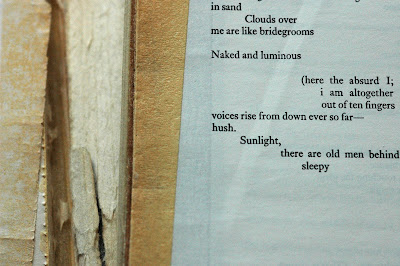 in sand
Clouds over
me are like bridegrooms
Naked and luminous
(here the absurd I;
i am altogether
out of ten fingers
voices rise from down ever so far—
hush.
Sunlight,
there are old men behind
sleepy